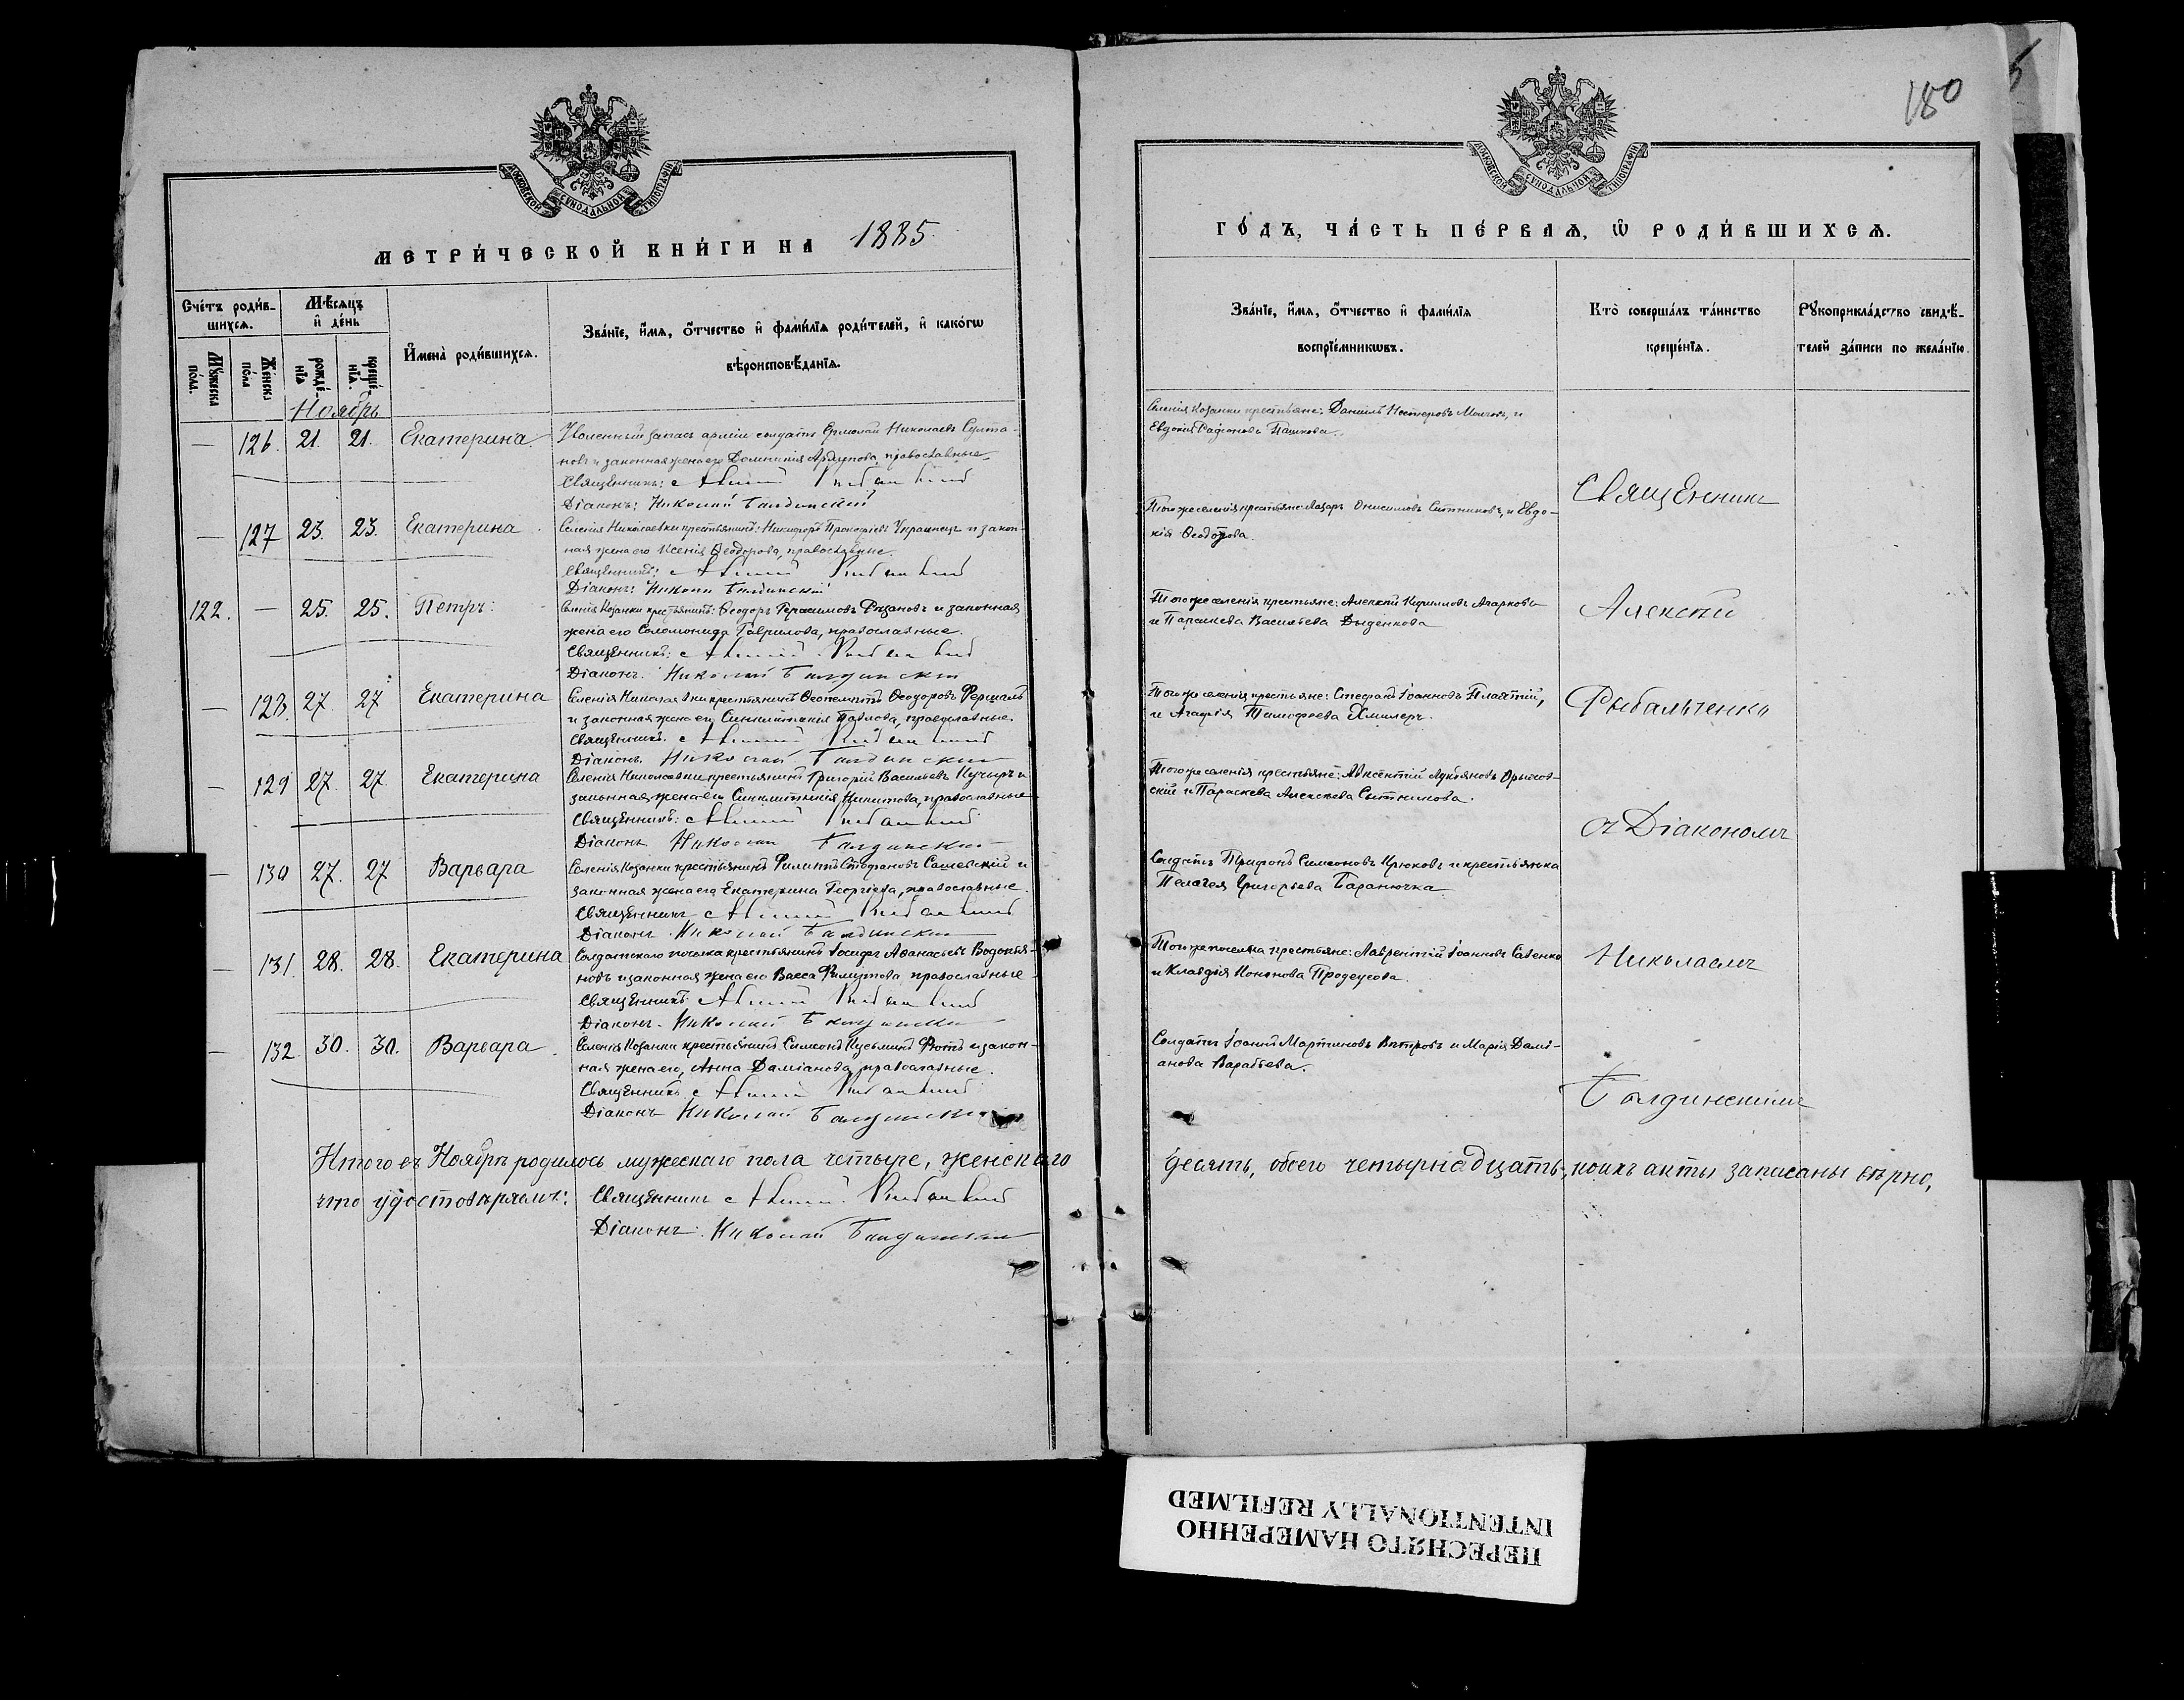 180
МОСКОВСКОЙ СѴНОДАЛЬНОЙ ТИПОГРАФІИ
МОСКОВСКОЙ СѴНОДАЛЬНОЙ ТИПОГРАФІИ
МЕТРИ́ЧЕСКОЙ КНИ́ГИ НА 1885.
ГО́ДЪ, ЧА́СТЬ ПЕ́РВАѦ, Ѿ РОДИ́ВШИХСѦ.
Сче́тъ роди́в-
шихсѧ.
Мꙋ́жеска по́ла.
Же́нска по́ла
Мѣ́сѧцъ
и де́нь
рожде́-нїѧ
креще́-нїѧ.
И҆мена̀ роди́вшихсѧ.
Зва́нїе, и҆́мѧ, ѻ҆́тчество и҆ фами́лїѧ роди́телей, и҆ како́гѡ
вѣроисповѣ́данїѧ.
Зва́нїе, и҆́мѧ, ѻ҆́тчество и҆ фами́лїѧ
воспрїе́мникѡвъ.
Кто̀ соверша́лъ та́инство
креще́нїѧ.
Рꙋкоприкла́дство свидѣ́-
телей за́писи по жела́нїю.
Ноябрь
— 126. 21. 21. Екатерина
Уволенный запасъ арміи солдатъ Ермолай Николаевъ Султа-
новъ и законная жена его Домникія, православные
Священникъ:
Діаконъ: Николай Балдинскій
Селенія Козанки крестьяне: Даніилъ Несторовъ, и
Евдокія Родіонова Пашкова.
— 127 23. 23. Екатерина
Селенія Николаевки крестьянинъ: Никифоръ Прокофіевъ Украинецъ и закон-
ная жена его Ксенія Ѳеодорова, православные.
Священникъ:
Діаконъ: Николай Балдинскій
Того же селенія крестьяне Лазарь Онисимовъ Ситниковъ, и Евдо-
кія Ѳеодорова.
122. — 25. 25. Петръ:
Селенія Козанки крестьянинъ: Ѳеодоръ Герасимовъ Рязановъ и законная
жена его Соломонида Гаврилова, православные.
Священникъ:
Діаконъ. Николай Балдинскій
Того же селенія крестьяне: Алексій Кирилловъ Агарковъ
и Параскева Васильева Дыденкова
— 128. 27. 27 Екатерина
Селенія Николаевки крестьянинъ Ѳеодоровъ
и законная жена его Синклитикія Павлова, православные.
Священникъ.
Діаконъ. Николай Балдинскій
Того же селенія крестьяне: Стефанъ Іоанновъ,
и Агафія Тимофеева.
— 129 27. 27. Екатерина
Селенія Николаевки крестьянинъ Григорій Васильевъ Кучиръ и
законная жена его Синклитикія Никитова, православные
Священникъ:
Діаконъ Николай Балдинскій
Того же селенія крестьяне: Авксентій Лукьяновъ Орѣхов-
скій и Параскева Алексѣева Сытникова.
— 130 27. 27 Варвара
Селенія Козанки крестьянинъ Филиппъ Стефановъ и
законная жена его Екатерина Георгіева, православные.
Священникъ
Діаконъ. Николай Балдинскій
Солдатъ Трифонъ Симеоновъ Крюковъ и крестьянка
Пелагея Григорьева Баранючка
— 131. 28. 28. Екатерина
Солдатскаго поселка крестьянинъ Іосифъ Аѳанасьевъ Водопья-
новъ и законная жена его Васса Филиппова православные
Священникъ:
Діаконъ. Николай Балдинскій
Того же поселка крестьяне: Лаврентій Іоанновъ Савенко
и Клавдія Кононова Продеусова.
— 132 30. 30. Варвара.
Селенія Козанки крестьянинъ Симеонъ Кузьминъ и закон-
ная жена его, Анна Даміанова православные.
Священникъ
Діаконъ Николай Балдинскій
Солдатъ Іоаннъ Мартиновъ Вѣтровъ и Марія Дамі-
анова Варабьева.
Священникъ
Алексій
Рыбальченко
съ Діакономъ
Николаемъ
Балдинскимъ
Итого въ Ноябрѣ родилось мужескаго пола четыре, женскаго десять, обоего четырнадцать, коихъ акты записаны вѣрно,
что удостовѣряемъ: Священникъ
Діаконъ: Николай Балдинскій
ПЕРЕСНЯТО НАМЕРЕННО
INTENTIONALLY REFILMED